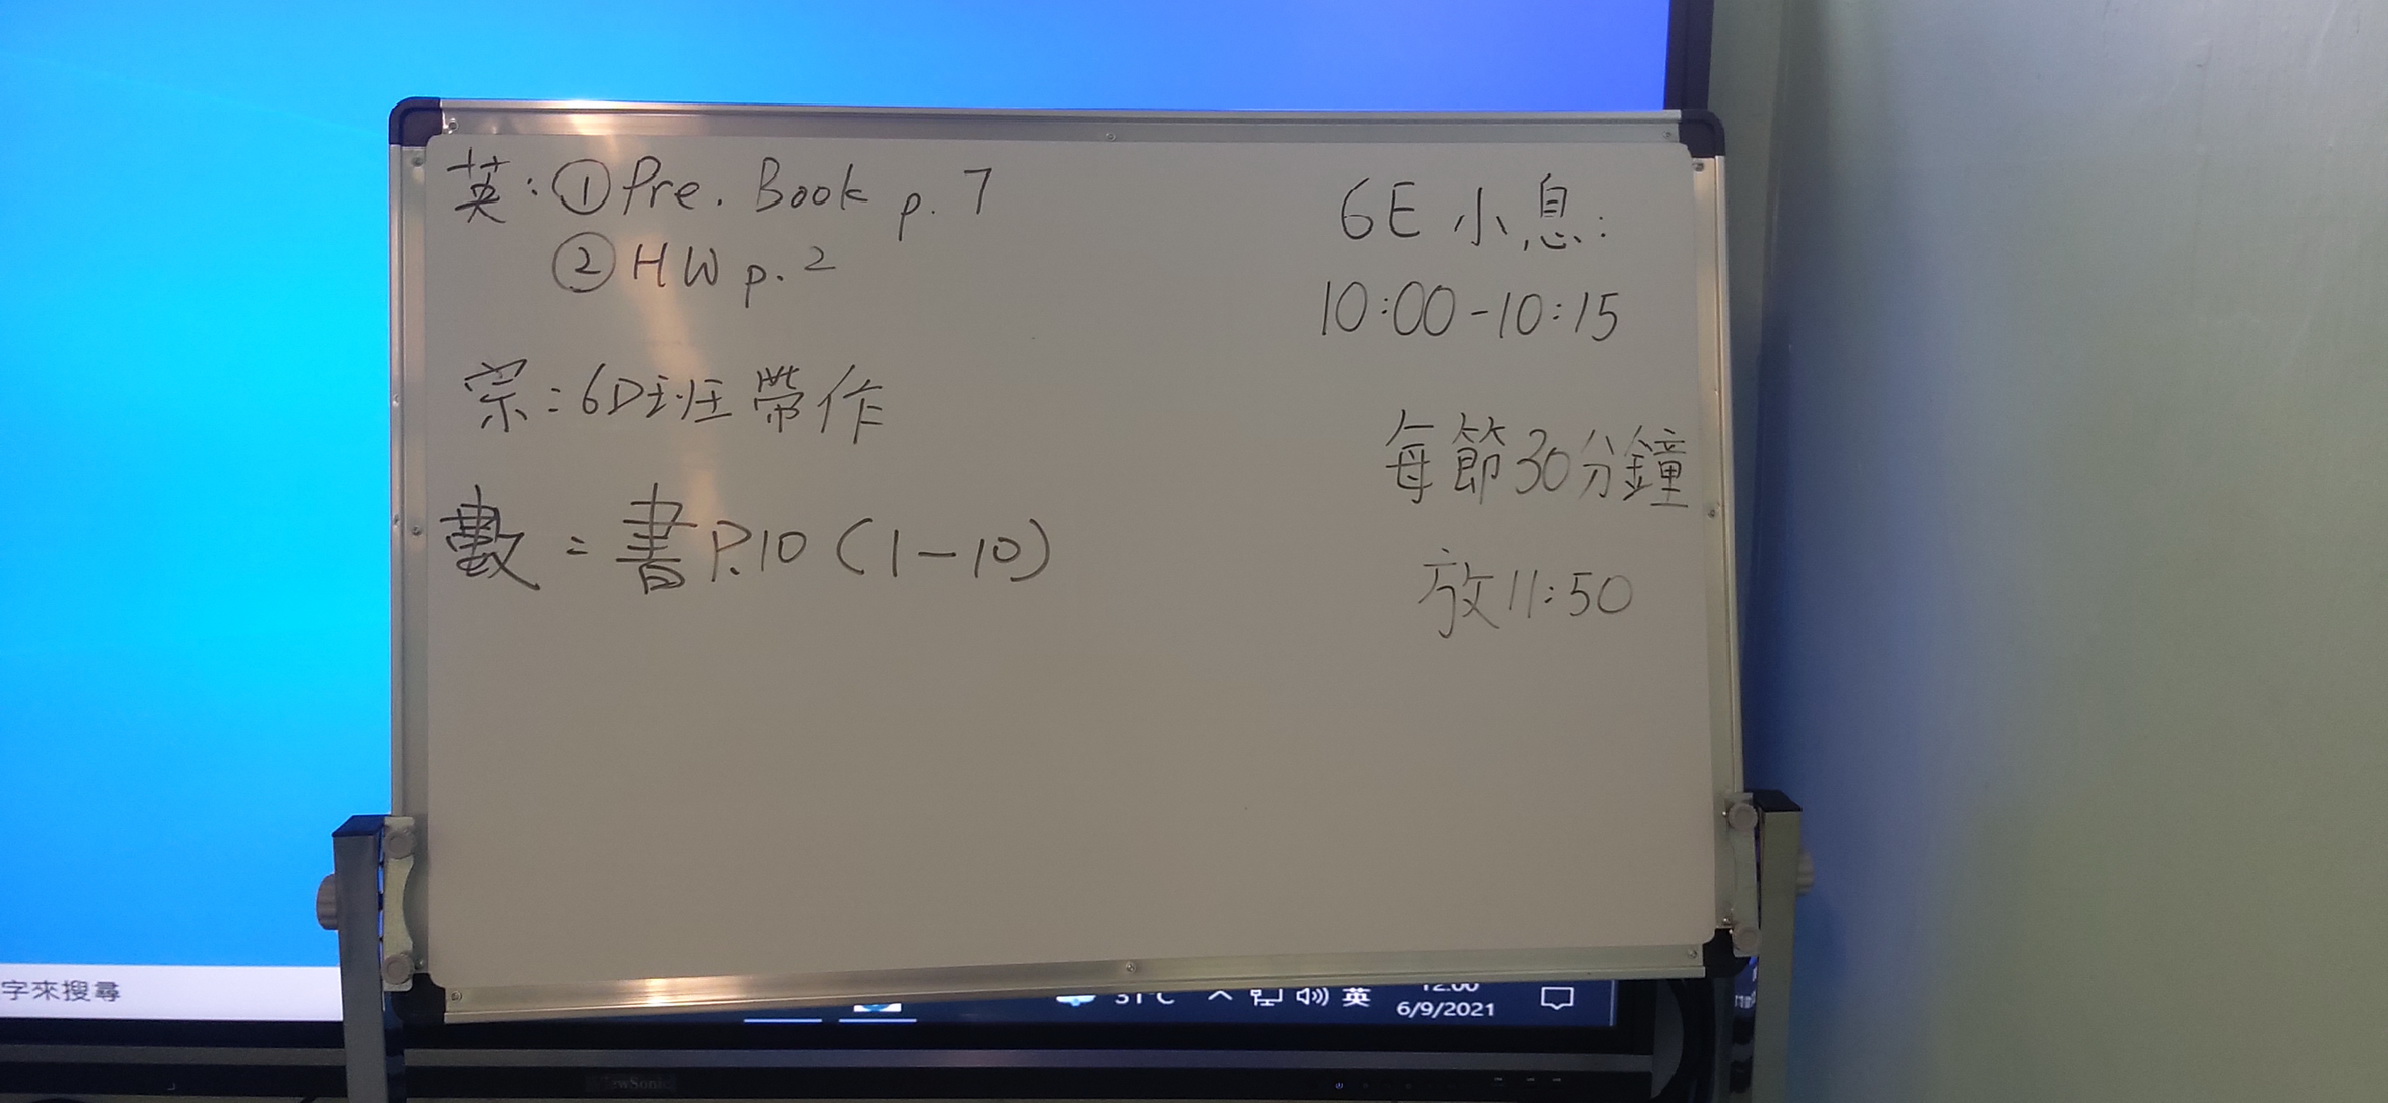 英：①Pre. Book p. 7
②HW p. 2
宗：6D班帶作
數：書P.10 (1-10)
6E 小息：
10:00-10:15
每節30分鐘
放11:50
字來搜尋
31°C
英
12:00
6/9/2021
ViewSonic